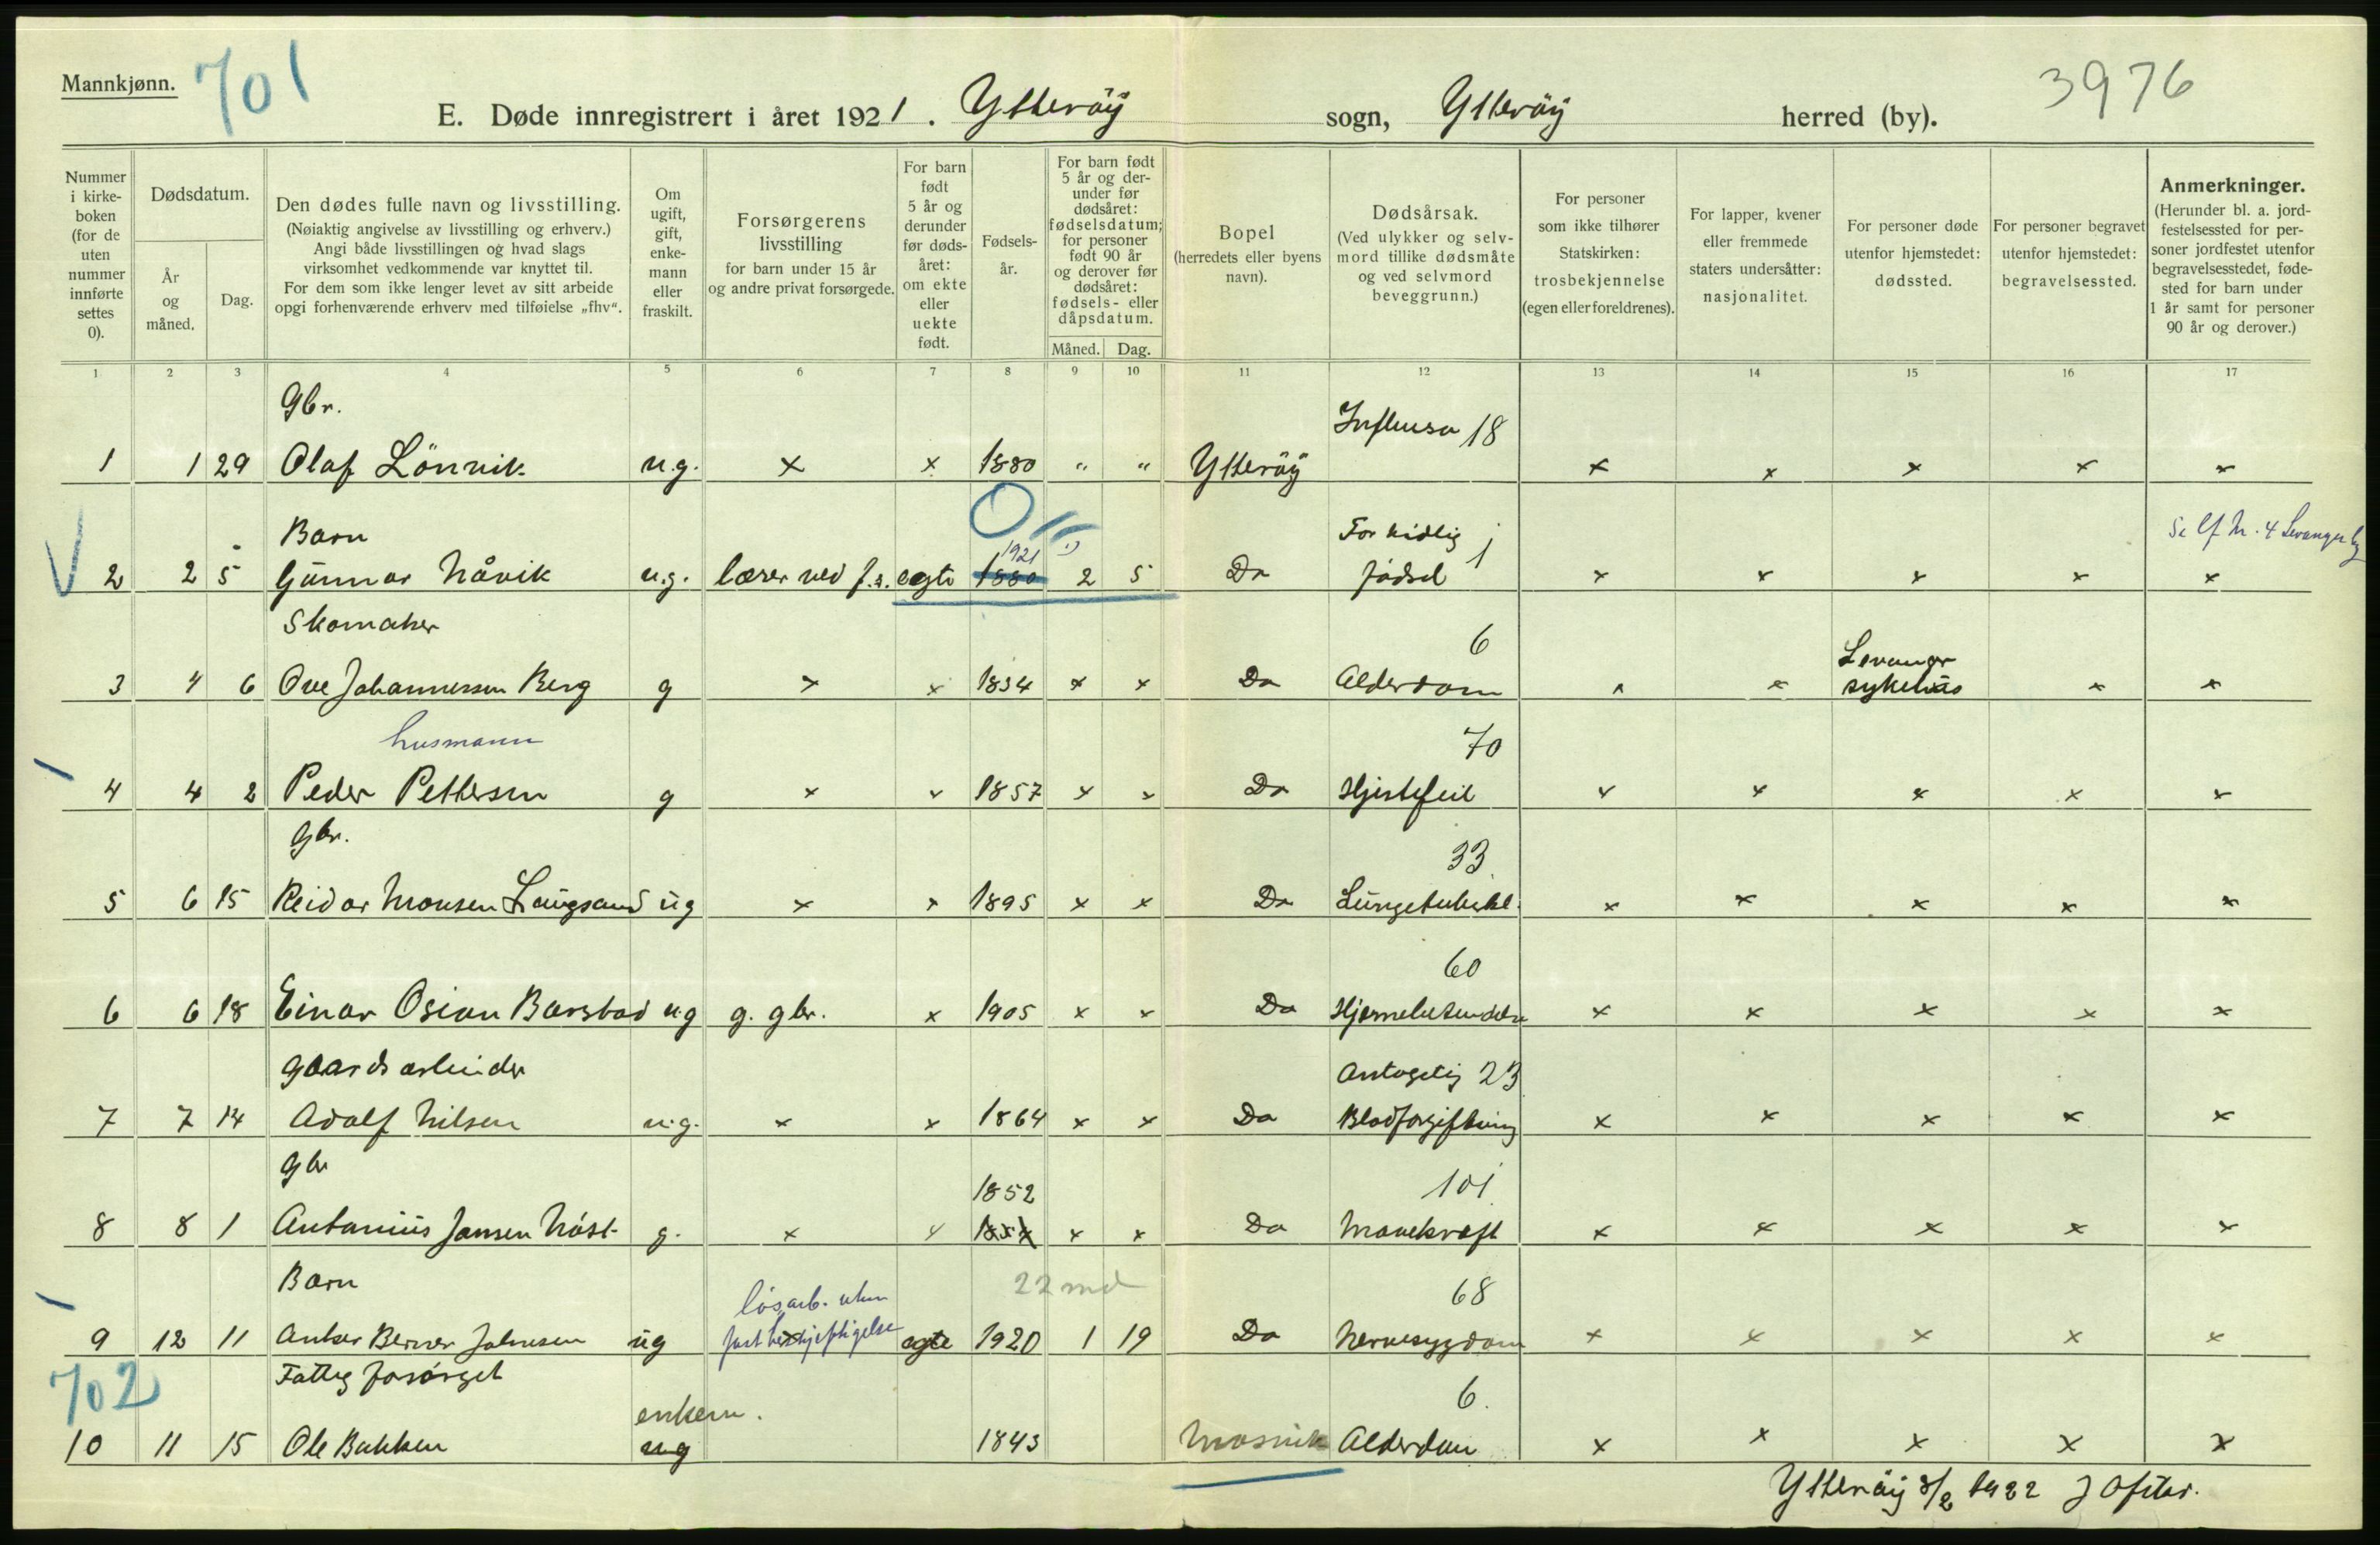 Mannkjønn. 701
E. Døde innregistrert i året 1921. Ytterøy sogn, Ytterøy herred (by). 3976
Nummer i kirkeboken (for de uten nummer innførte settes 0).
Dødsdatum.
År og måned.
Dag.
Den dødes fulle navn og livsstilling.
(Nøiaktig angivelse av livsstilling og erhverv.)
Angi både livsstillingen og hvad slags
virksomhet vedkommende var knyttet til.
For dem som ikke lenger levet av sitt arbeide
opgi forhenværende erhverv med tilføielse „fhv“.
Om ugift, gift, enkemann eller fraskilt.
Forsørgerens livsstilling
for barn under 15 år
og andre privat forsørgede.
For barn født 5 år og derunder før dødsåret: om ekte eller uekte født.
Fødselsår.
For barn født 5 år og derunder før dødsåret: fødselsdatum; for personer født 90 år og derover før dødsåret: fødsels- eller dåpsdatum.
Måned. Dag.
Bopel
(herredets eller byens navn).
Dødsårsak.
(Ved ulykker og selvmord tillike dødsmåte og ved selvmord beveggrunn.)
For personer som ikke tilhører Statskirken: trosbekjennelse (egen eller foreldrenes).
For lapper, kvener eller fremmede staters undersåtter: nasjonalitet.
For personer døde utenfor hjemstedet: dødssted.
For personer begravet utenfor hjemstedet: begravelsessted.
Anmerkninger.
(Herunder bl. a. jordfestelsessted for personer jordfestet utenfor begravelsesstedet, fødested for barn under 1 år samt for personer 90 år og derover.)
1 2 3 4 5 6 7 8 9 10 11 12 13 14 15 16 17
Gbr. 18
1 1 29 Olaf Lönvik u.g. x x 1880 " " Ytterøy x x x x x
Barn 1921 For tidlig 1
2 2 5 Gunnar Håvik u.g. lærer ved f.s. egte 1880 2 5 Do fødsel x x x x x
Skomaker 6 Levanger
3 4 6 Ove Johannessen Berg g x x 1834 x x Do Alderdom x x sykehus x x
husmann 70
4 4 2 Peder Pettersen g x x 1857 x x Do Hjertefeil x x x x x
Gbr. 33
5 6 15 Reidar Monsen Langsand ug x x 1895 x x Do Lungetuberkl. x x x x x
60
6 6 18 Einar Osian Barstad ug g. gbr. x 1905 x x Do x x x x x
Gaardsarbeider Antagelig 23
7 7 14 Adolf Nilsen u.g. x x 1864 x x Do Blodforgiftning x x x x x
Gbr 1852 101
8 8 1 Antonius Jansen g. x x x x Do Mavekræft x x x x x
Barn løsarb. uten 22 md 68
9 12 11 Anker Berner Johnsen ug fast beskjeftigelse egte 1920 1 19 Do Nervesygdom x x x x x
702 Fattig forsørget enkem. 6.
10 11 15 Ole Bakken ug 1843 Mosvik Alderdom x x x x x
Ytterøy 8/2 1922